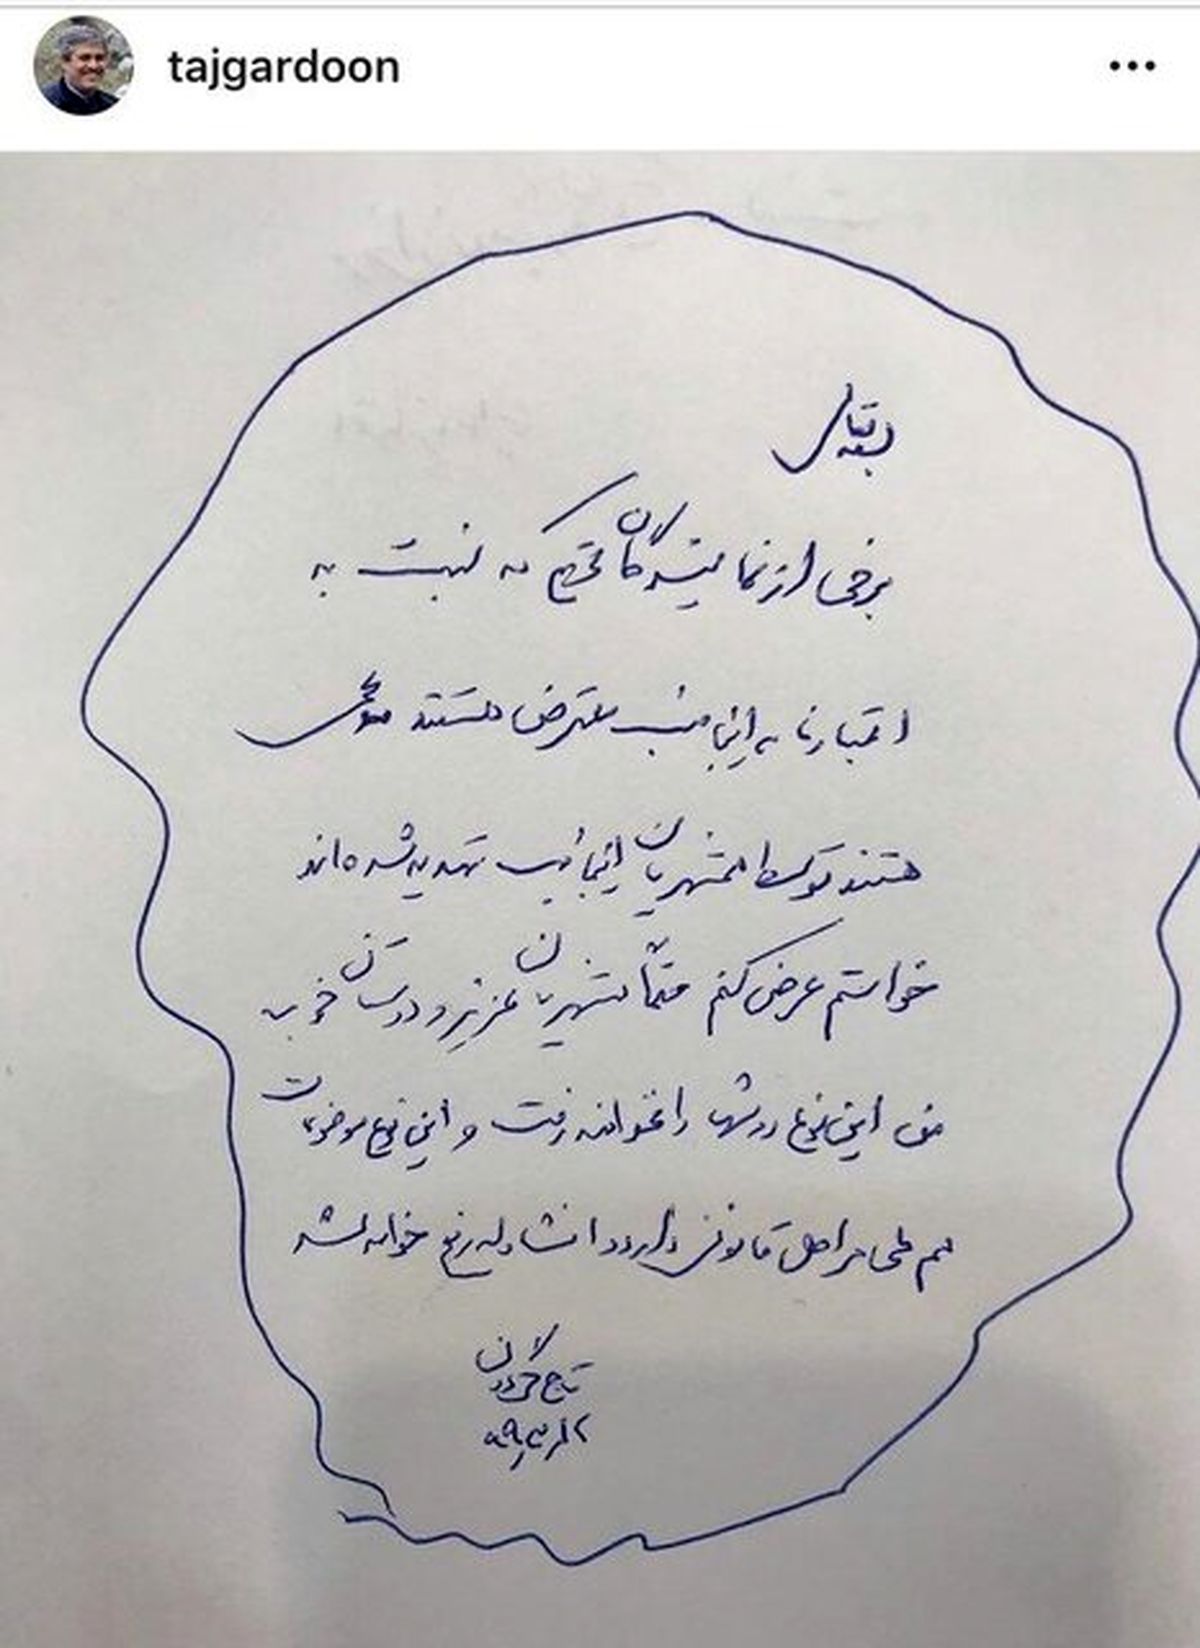 tajgardoon
بسمه تعالی
برخی از نمایندگان محترم که نسبت به
اعتبارنامه اینجانب معترض هستند مدعی
هستند توسط همشهریان اینجانب تهدید شده‌اند
خواستم عرض کنم حتماً همشهریان عزیز و دوستان خوب
من این نوع روشها را نخواهند رفت و این نوع موضوعات
هم طی مراحل قانونی دارد و انشاءاله رفع خواهد شد
تاجگردون